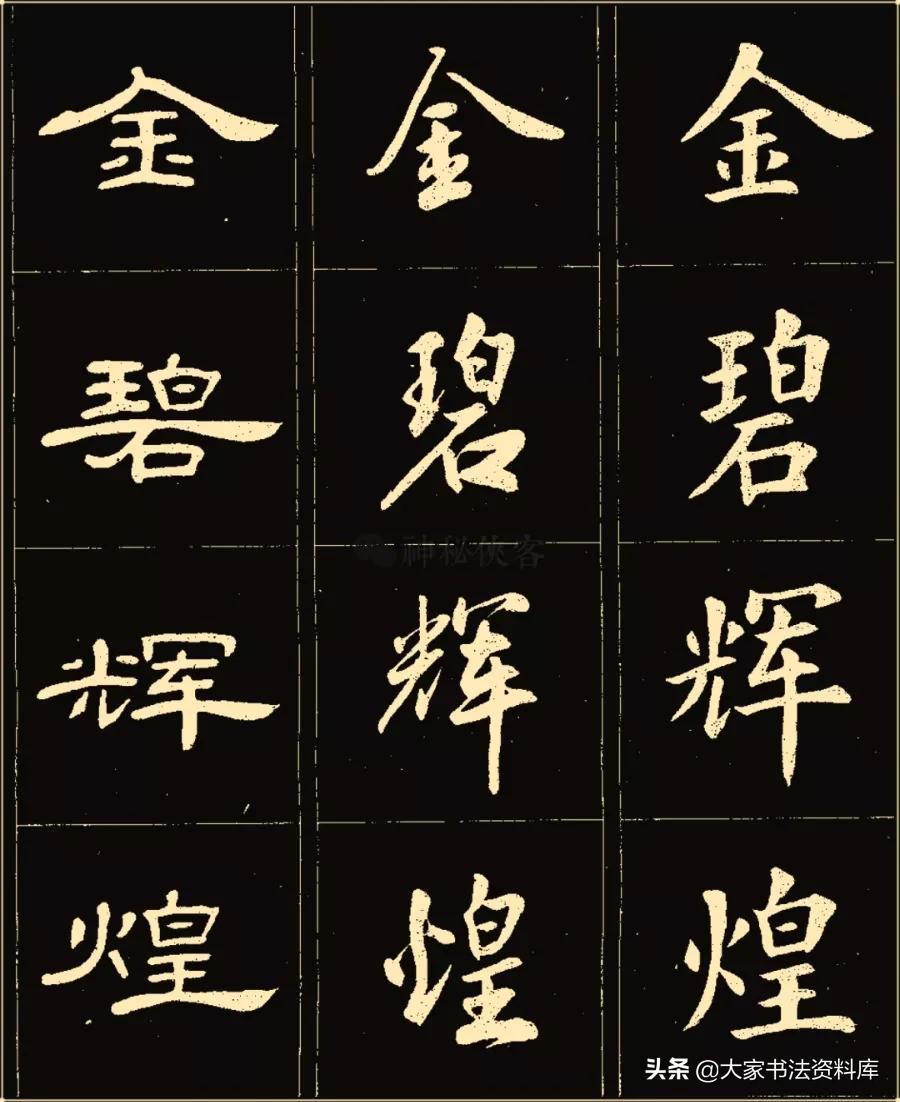 金碧辉煌
金碧辉煌
金碧辉煌
神秘俠客
头条 @大家书法资料库